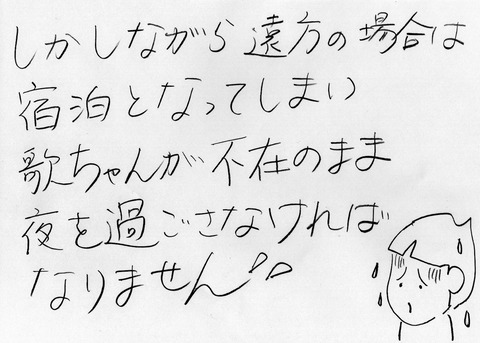 しかしながら遠方の場合は
宿泊となってしまい
歌ちゃんが不在のまま
夜を過ごさなければ
なりません